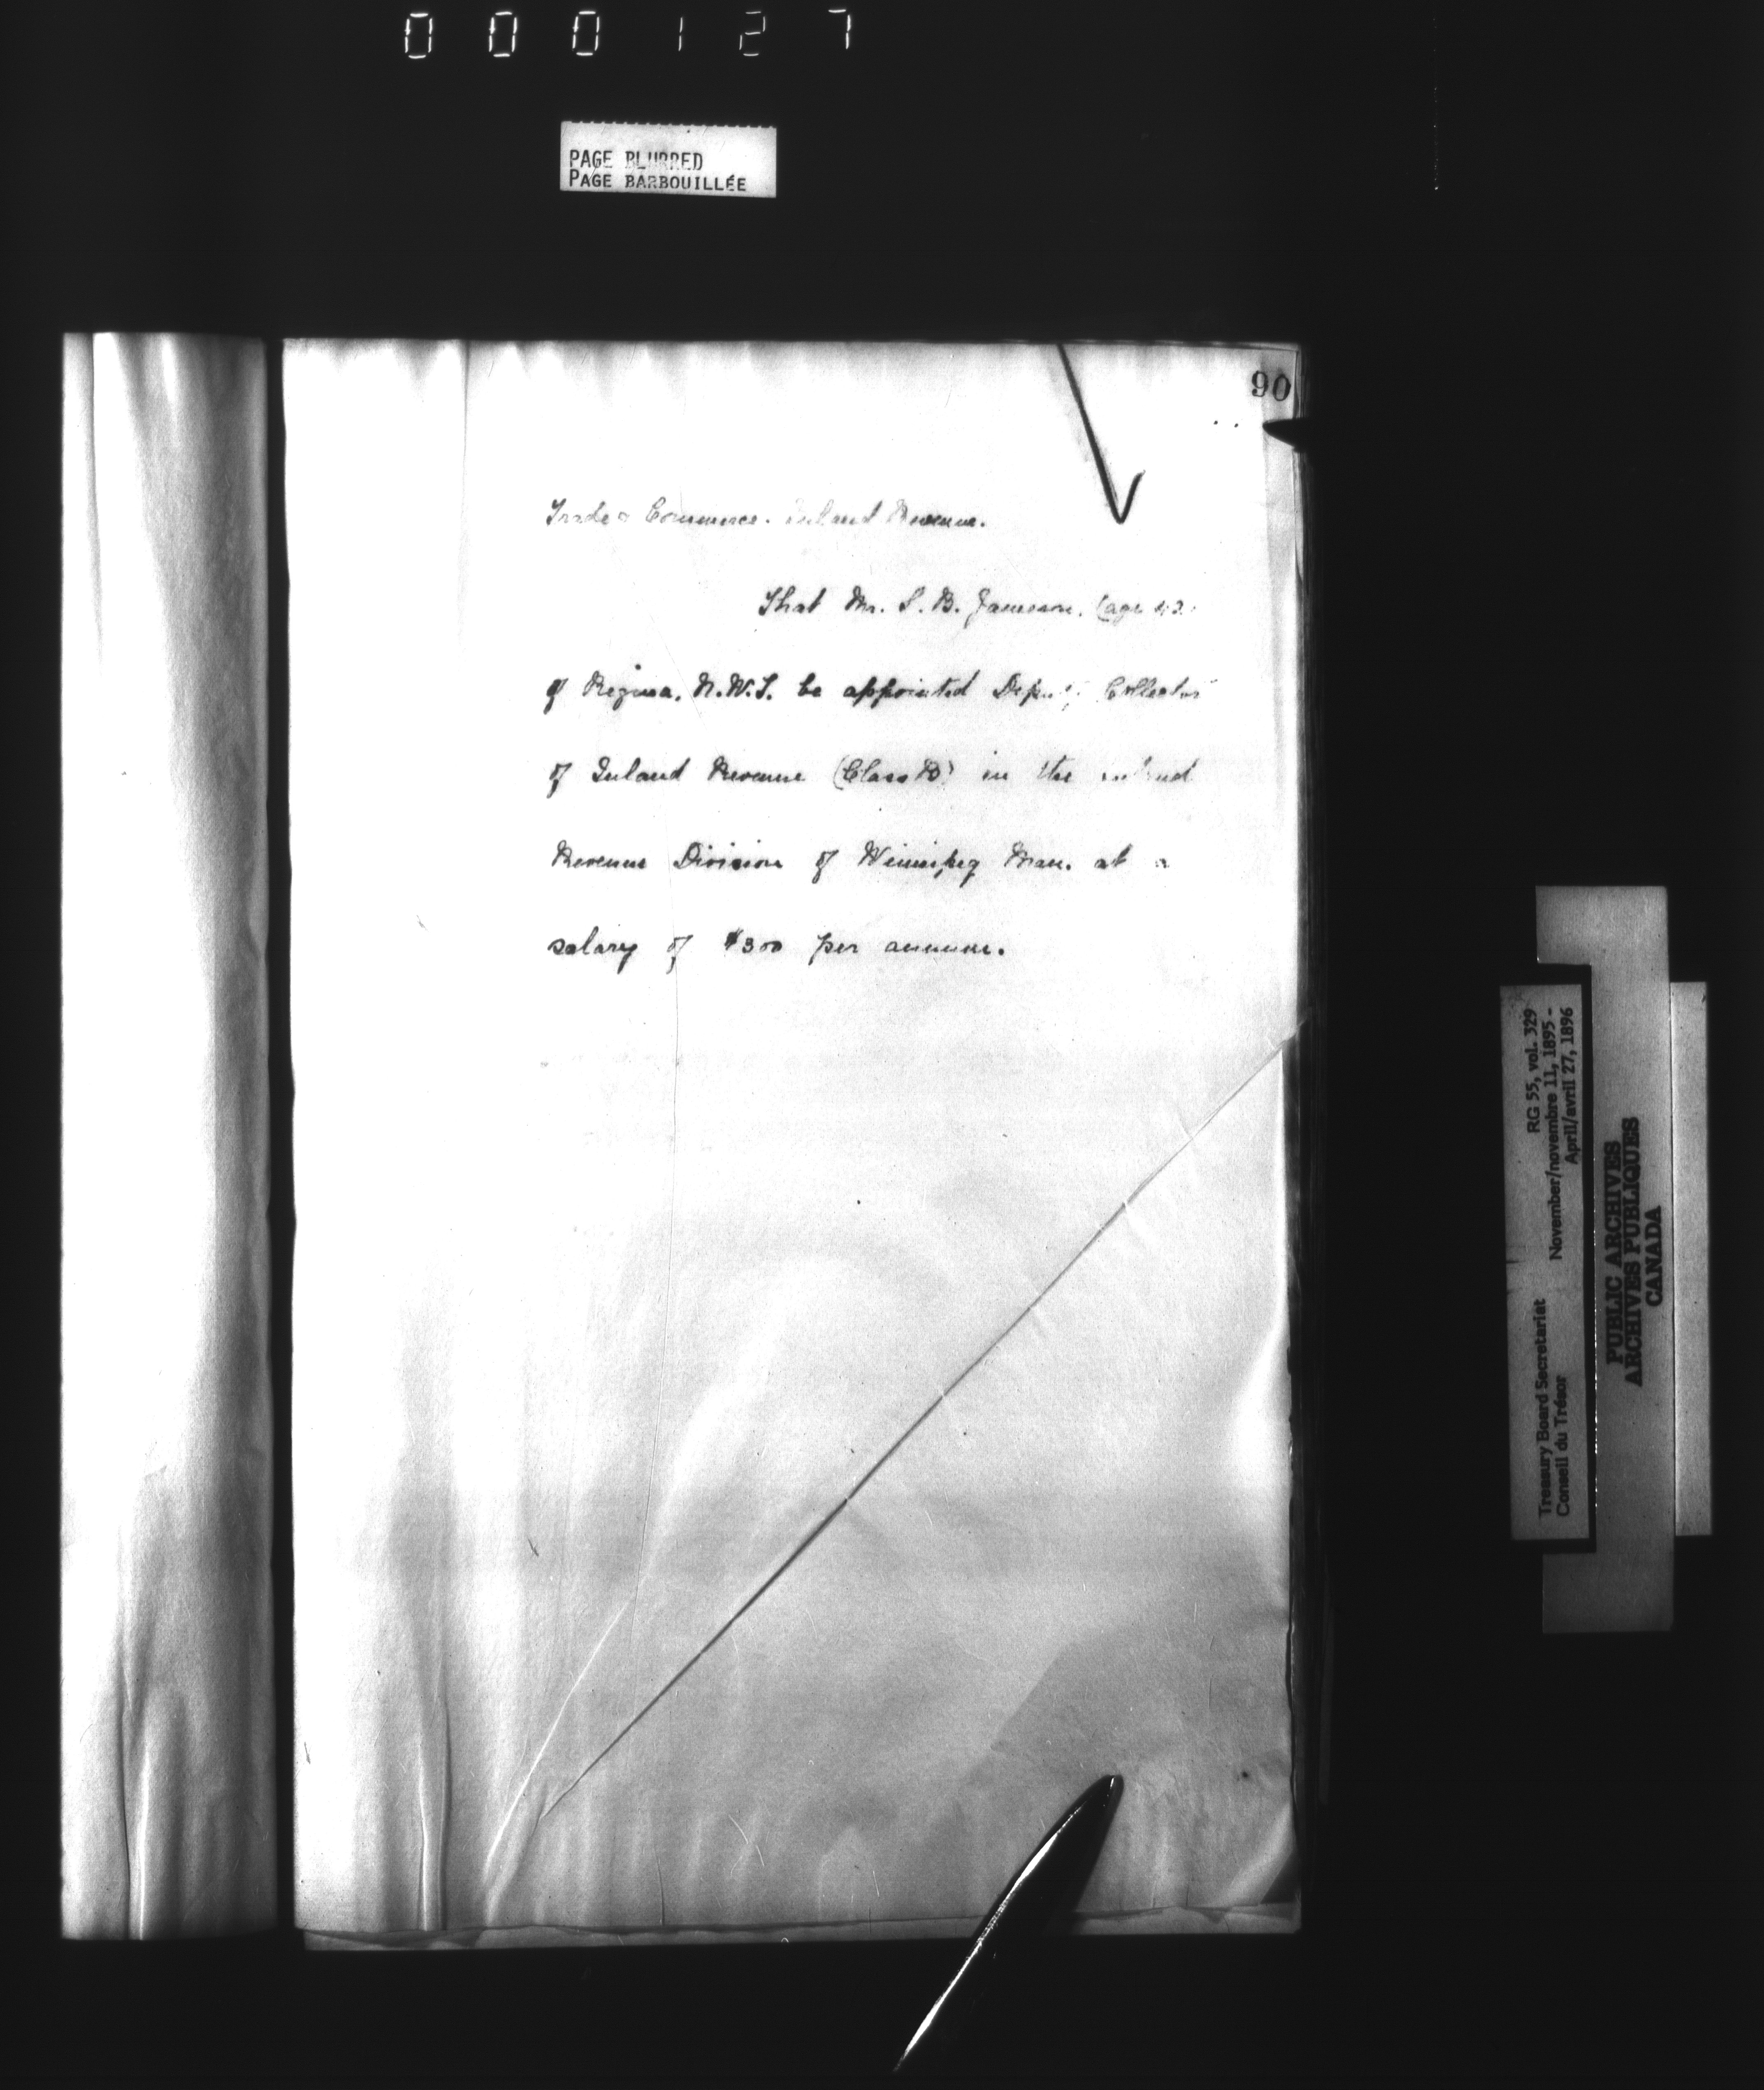 000127
PAGE BLURRED
PAGE BARBOUILLÉE
90
Trade & Commerce. Inland Revenue.
That Mr. S. B. Jameson. (age 42)
of Regina, N.W.T. be appointed Deputy Collector
of Inland Revenue (Class B) in the Inland
Revenue Division of Winnipeg Man. at a
salary of $300 per annum.
Treasury Board Secretariat RG 55, vol. 329
Conseil du Trésor November/novembre 11, 1895 -
April/avril 27, 1896
PUBLIC ARCHIVES
ARCHIVES PUBLIQUES
CANADA